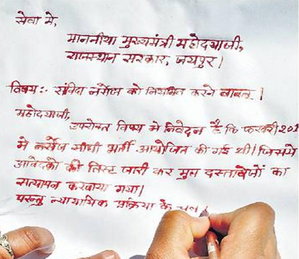 सेवा में,
माननीया मुख्यमंत्री महोदयाजी,
राजस्थान सरकार, जयपुर।
विषय:- संविदा नर्सेज को नियमित करने बाबत्।
महोदयाजी,
उपरोक्त विषय में निवेदन है कि फरवरी 201
में नर्सेज सीधी भर्ती आयोजित की गई थी। जिसमें
आवेदकों की लिस्ट जारी कर मूल दस्तावेजों का
सत्यापन करवाया गया।
परन्तु न्यायायिक प्रक्रिया के